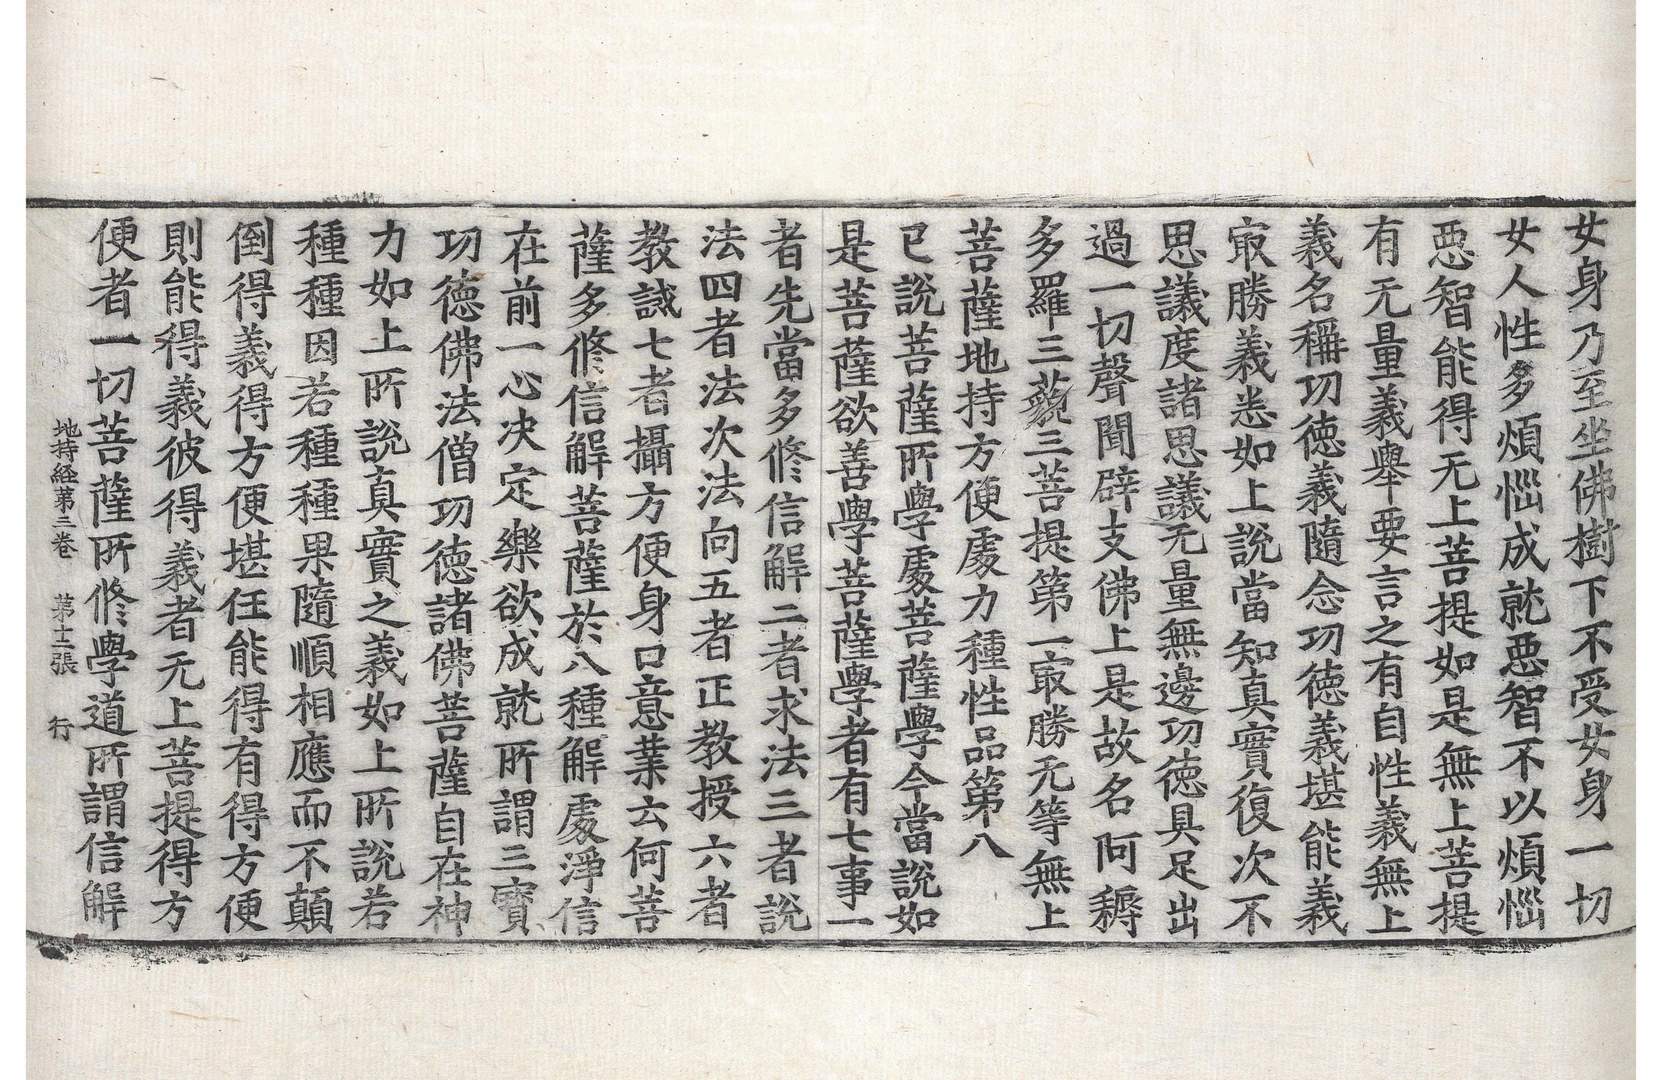 女身乃至坐佛樹下不受女身一切
女人性多煩惱成就惡智不以煩惱
惡智能得无上菩提如是無上菩提
有无量義舉要言之有自性義無上
義名稱功德義隨念功德義堪能義
㝡勝義悉如上說當知真實復次不
思議度諸思議无量無邊功德具足出
過一切聲聞辟支佛上是故名阿耨
多羅三藐三菩提第一㝡勝无等無上
菩薩地持方便處力種性品第八
已說菩薩所學處菩薩學今當說如
是菩薩欲善學菩薩學者有七事一
者先當多修信解二者求法三者說
法四者法次法向五者正教授六者
教誡七者攝方便身口意業云何菩
薩多修信解菩薩於八種解處淨信
在前一心决定樂欲成就所謂三寶
功德佛法僧功德諸佛菩薩自在神
力如上所說真實之義如上所說若
種種因若種種果隨順相應而不顛
倒得義得方便堪任能得有得方便
則能得義彼得義者无上菩提得方
便者一切菩薩所修學道所謂信解
地持経第三卷 第十二張 行